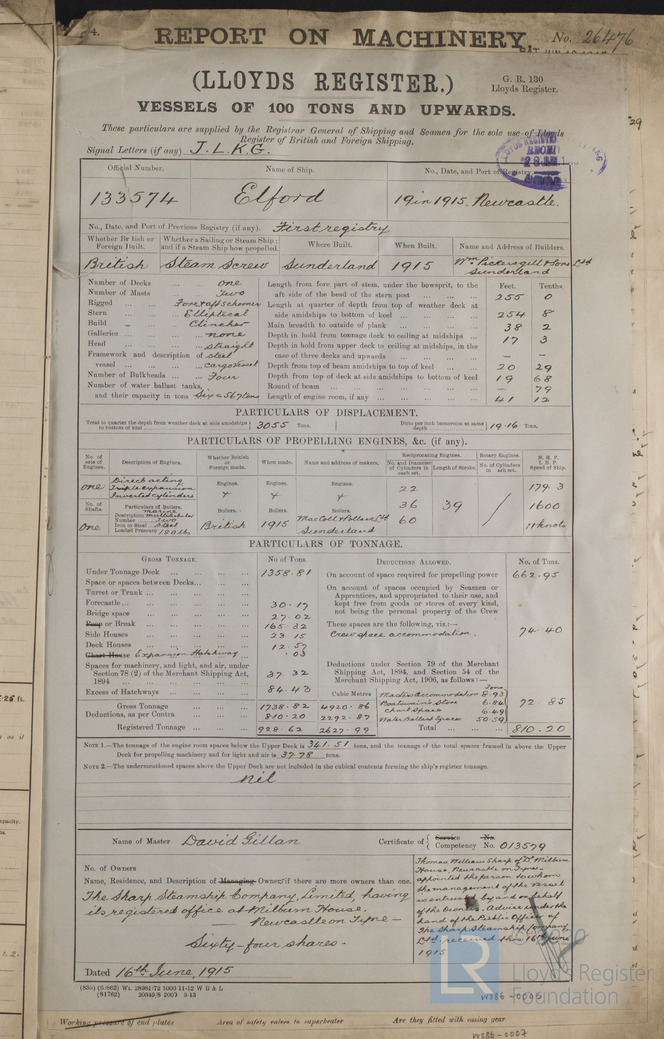 4.
REPORT ON MACHINERY. No. 26476
(LLOYDS REGISTER.)
G. R. 130
Lloyds Register.
VESSELS OF 100 TONS AND UPWARDS.
These particulars are supplied by the Registrar General of Shipping and Seamen for the sole use of Lloyds
Register of British and Foreign Shipping.
Signal Letters (if any) J.L.K.G.
Official Number. Name of Ship. No., Date, and Port of Registry.
133574 Elford 19 in 1915. Newcastle.
No., Date, and Port of Previous Registry (if any). First registry
Whether British or Foreign Built. Whether a Sailing or Steam Ship; and if a Steam Ship how propelled. Where Built. When Built. Name and Address of Builders.
British Steam Screw Sunderland 1915 Wm Pickersgill & Sons Ltd
Sunderland
Feet. Tenths
Number of Decks one Length from fore part of stem, under the bowsprit, to the
Number of Masts Two aft side of the head of the stern post 255 0
Rigged Fore & aft schooner Length at quarter of depth from top of weather deck at
Stern Elliptical side amidships to bottom of keel 254 8
Build Clincher Main breadth to outside of plank 38 2
Galleries none Depth in hold from tonnage deck to ceiling at midships 17 3
Head straight Depth in hold from upper deck to ceiling at midships, in the
Framework and description of steel case of three decks and upwards — —
vessel cargo vessel Depth from top of beam amidships to top of keel 20 29
Number of Bulkheads Four Depth from top of deck at side amidships to bottom of keel 19 68
Number of water ballast tanks, Round of beam — 79
and their capacity in tons Six = 567 tons Length of engine room, if any 41 12
PARTICULARS OF DISPLACEMENT.
Total to quarter the depth from weather deck at side amidships to bottom of keel 3055 Tons. Ditto per inch immersion at same depth 19.16 Tons.
PARTICULARS OF PROPELLING ENGINES, &c. (if any).
No. of sets of Engines. Description of Engines. Whether British or Foreign made. When made. Name and address of makers. Reciprocating Engines. Rotary Engines. N. H. P. I. H. P. Speed of Ship.
No. and Diameter of Cylinders in each set. Length of Stroke. No. of Cylinders in each set.
one Direct acting Triple expansion Inverted cylinders Engines. Engines. Engines. 22 179.3
No. of Shafts. Particulars of Boilers. 36 39 1600
Description marine multitubular
Number Two Boilers. Boilers. Boilers.
One Iron or Steel steel British 1915 MacColl & Pollock Ltd 60 11 knots
Loaded Pressure 180 lbs Sunderland
PARTICULARS OF TONNAGE.
GROSS TONNAGE. No of Tons. DEDUCTIONS ALLOWED. No. of Tons.
Under Tonnage Deck 1358.81 On account of space required for propelling power 662.95
Space or spaces between Decks On account of spaces occupied by Seamen or
Turret or Trunk Apprentices, and appropriated to their use, and
Forecastle 30.17 kept free from goods or stores of every kind,
Bridge space 27.02 not being the personal property of the Crew
Poop or Break 165.32 These spaces are the following, viz.:—
Side Houses 23.15 Crew space accommodation. 74.40
Deck Houses 12.57
Chart House Expansion Hatchway .03
Spaces for machinery, and light, and air, under Deductions under Section 79 of the Merchant
Section 78 (2) of the Merchant Shipping Act, Shipping Act, 1894, and Section 54 of the
1894 37.32 Merchant Shipping Act, 1906, as follows:—
Excess of Hatchways 84.43 Cubic Metres Master's Accommodation 8.93
Gross Tonnage 1738.82 4920.86 Boatswain's Store 6.84 72.85
Deductions, as per Contra 810.20 2292.87 Chart Space 6.49
Water Ballast Spaces 50.59
Registered Tonnage 928.62 2627.99 Total 810.20
NOTE 1.—The tonnage of the engine room spaces below the Upper Deck is 341.51 tons, and the tonnage of the total spaces framed in above the Upper
Deck for propelling machinery and for light and air is 37.78 tons.
NOTE 2.—The undermentioned spaces above the Upper Deck are not included in the cubical contents forming the ship's register tonnage.
nil
Name of Master David Gillan Certificate of { Service No. Competency No. 013579
No. of Owners
Name, Residence, and Description of Managing Owner if there are more owners than one.
The Sharp Steamship Company, Limited, having
its registered office at Milburn House,
Newcastle on Tyne —
Sixty-four shares —
Thomas William Sharp of D. Milburn
House, Newcastle on Tyne —
appointed the person to whom
the management of the vessel
is entrusted by and on behalf
of the Owners. Advice under the
hand of the Public Officer of
The Sharp Steamship Company
Ltd. received this 16th June
1915
Dated 16th June, 1915
(835) (8/862) Wt. 28981/72 1000 11-12 W B & L
(81762) 20349/8 2000 3-13
LR Lloyd's Register
Foundation
W386-0005
Working pressure of end plates Area of safety valves to superheater Are they fitted with easing gear
W386-0007